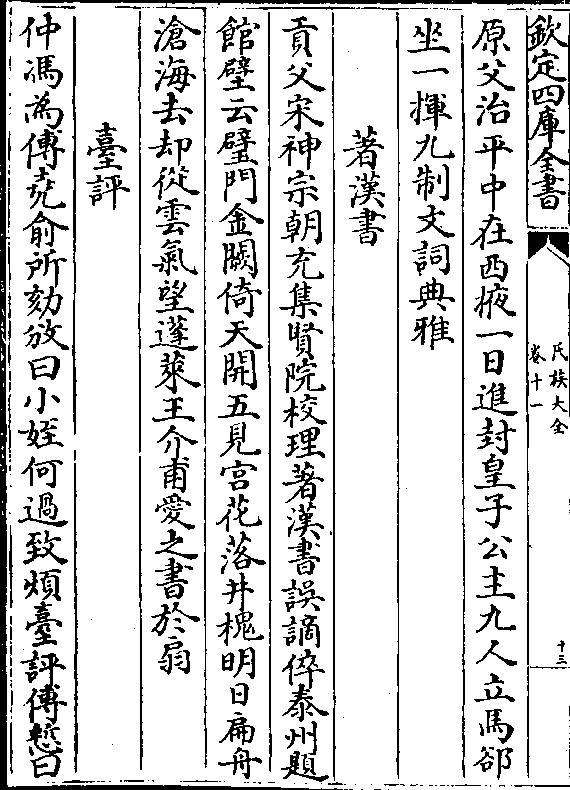 欽定四庫全書
氏族大全
卷十一
十三
原父治平中在西掖一日進封皇子公主九人立馬郤
坐一揮九制文詞典雅
著漢書
貢父宋神宗朝充集賢院校理著漢書誤謫倅泰州題
館壁云璧門金闕倚天開五見宮花落井槐明日扁舟
滄海去却從雲氣望蓬萊王介甫愛之書於扇
臺評
仲馮為傅堯俞所劾攽曰小姪何過致煩臺評傅慙曰